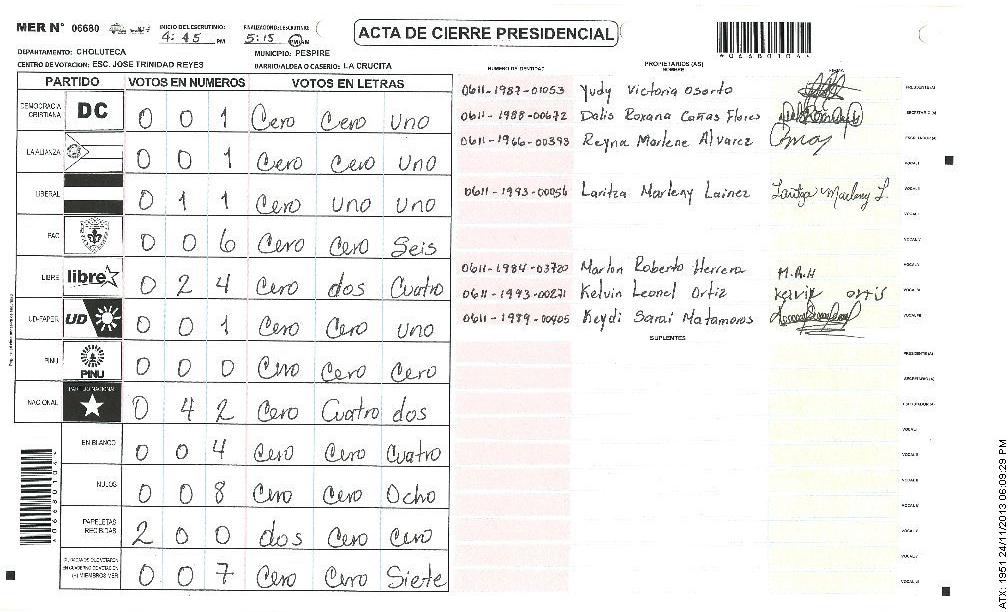 MER N° 06680 INICIO DE ESCRUTINIO: 4:45 PM 5:15 ACTA DE CIERRE PRESIDENCIAL
DEPARTAMENTO: CHOLUTECA MUNICIPIO: PESPIRE
CENTRO DE VOTACION: ESC. JOSE TRINIDAD REYES BARRIO/ALDEA O CASERIO: LA CRUCITA
PARTIDO VOTOS EN NUMEROS VOTOS EN LETRAS
DEMOCRACIA CRISTIANA DC 0 0 1 Cero Cero uno
LA ALIANZA 0 0 1 Cero Cero Uno
LIBERAL 0 1 1 Cero uno uno
PAC 0 0 6 Cero Cero Seis
LIBRE libre 0 2 4 Cero dos Cuatro
UD-FAPER UD 0 0 1 Cero Cero uno
PINU PINU 0 0 0 Cero Cero Cero
NACIONAL PARTIDO NACIONAL 0 4 2 Cero Cuatro dos
EN BLANCO 0 0 4 Cero Cero Cuatro
NULOS 0 0 8 Cero Cero Ocho
PAPELETAS RECIBIDAS 2 0 0 dos Cero Cero
(+) MIEMBROS MER 0 0 7 Cero Cero Siete
NUMERO DE IDENTIDAD PROPIETARIOS (AS) NOMBRE FIRMA
0611-1987-01053 Yudy Victoria Osorto PRESIDENTE(A)
0611-1988-00672 Dalis Roxana Cañas Flores SECRETARIO(A)
0611-1966-00393 Reyna Marlene Alvarez ESCRUTADOR(A)
VOCAL I
0611-1993-00056 Laritza Marleny Lainez Laritza Marleny L.
0611-1984-03720 Marlon Roberto Herrera M.R.H
0611-1993-00271 Kelvin Leonel Ortiz Kelvin ortis
0611-1989-00405 Keydi Sarai Matamoros
SUPLENTES
PRESIDENTE(A)
SECRETARIO(A)
ESCRUTADOR(A)
06680104
ATX: 1951 24/11/2013 06:09:29 PM